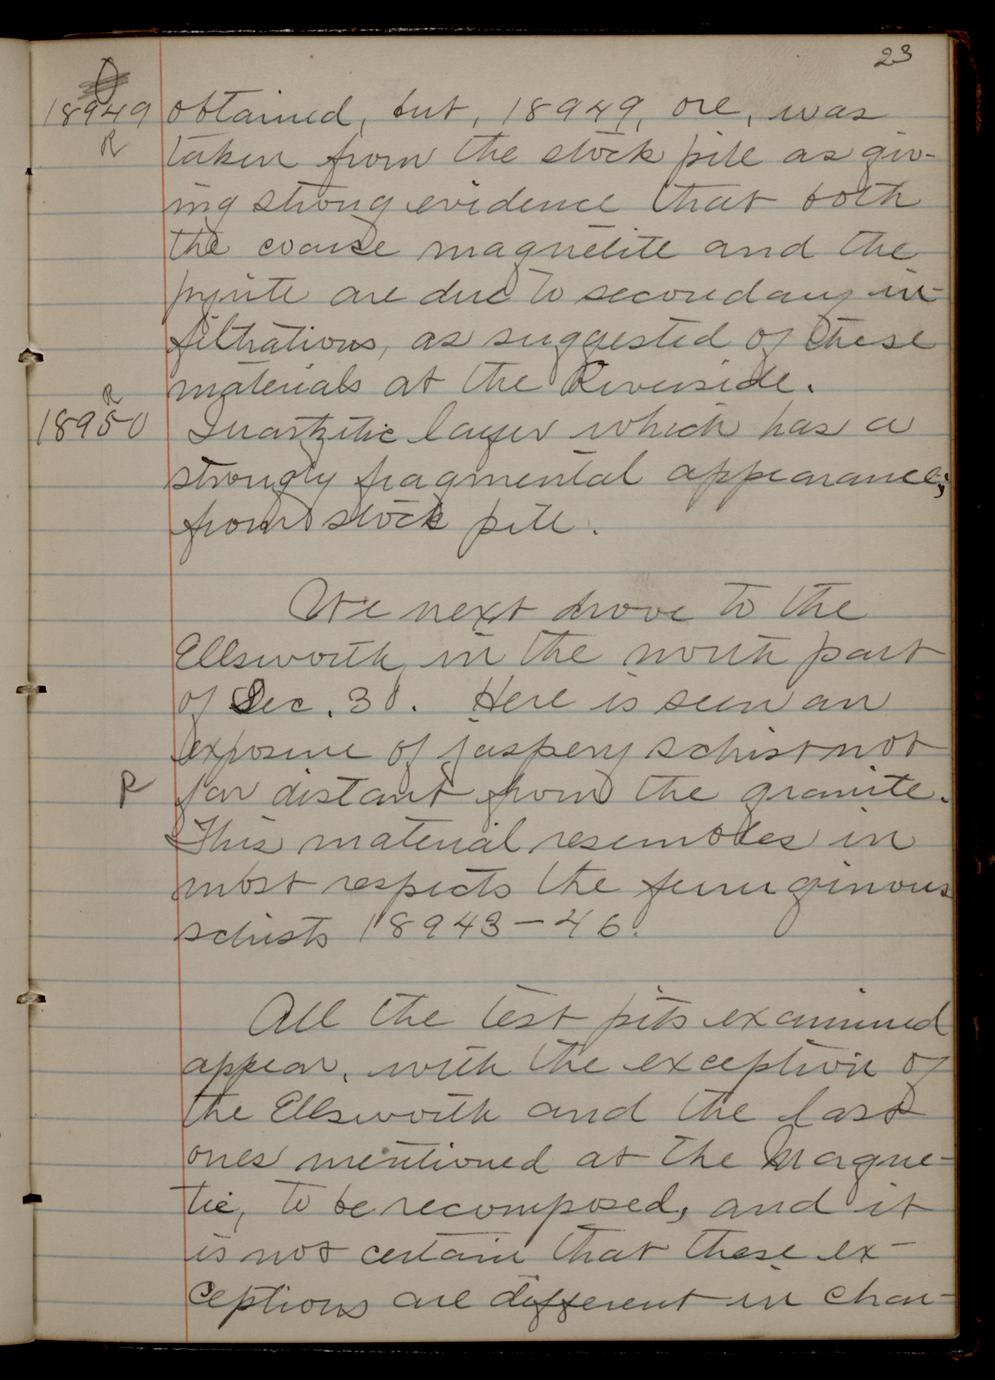 23
18949 obtained, but, 18949, ore, was
R taken from the stock pile as giv-
ing strong evidence that both
the coarse magnetite and the
pyrite are due to secondary in-
filtrations, as suggested of these
materials at the Riverside.
R
18950 Quartzitic layer which has a
strongly fragmental appearance;
from stock pile.
We next drove to the
Ellsworth, in the north part
of Sec. 30. Here is seen an
exposure of jaspery schist not
R far distant from the granite.
This material resembles in
most respects the ferruginous
schists 18943-46.
All the test pits examined
appear, with the exception of
the Ellsworth and the last
ones mentioned at the Magne-
tic, to be recomposed, and it
is not certain that these ex-
ceptions are different in char-